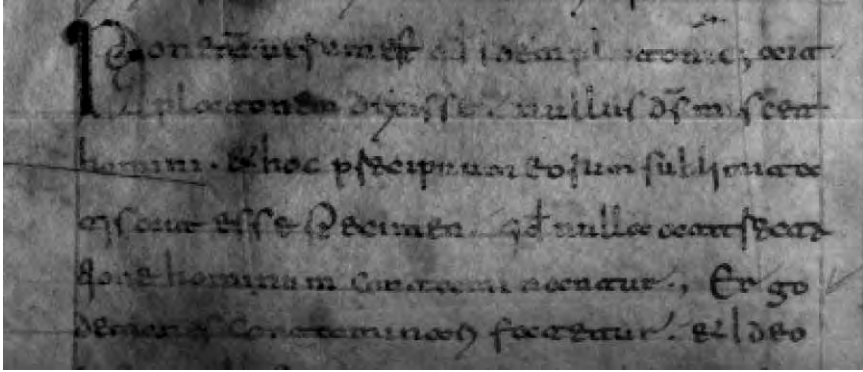 Non uerum est qd idem platonic; ait
platonem dixisse. nullus d̄s miscet
homini. & hoc p̄recipuum eorum sublimitat
esse specimen. qđ nulla attrecta
tione hominum contaminantur., Ergo
demones contaminari fatetur. & ideo